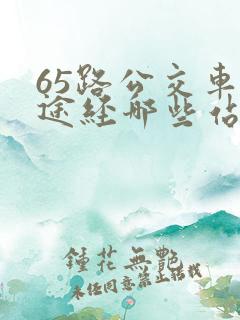 65路公交車
途經那些佔
鍾花無艷
未任同意禁止轉載